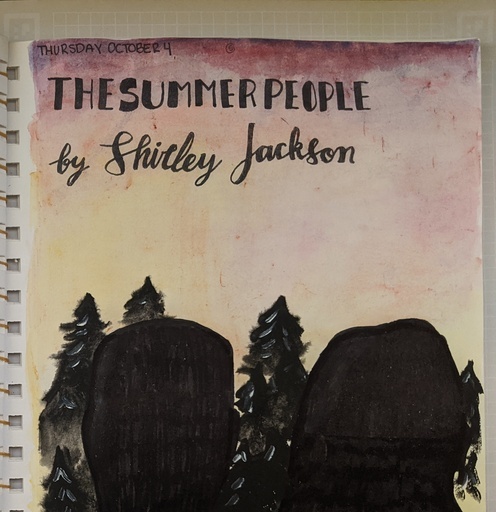 THURSDAY, OCTOBER 4,
THE SUMMER PEOPLE
by Shirley Jackson